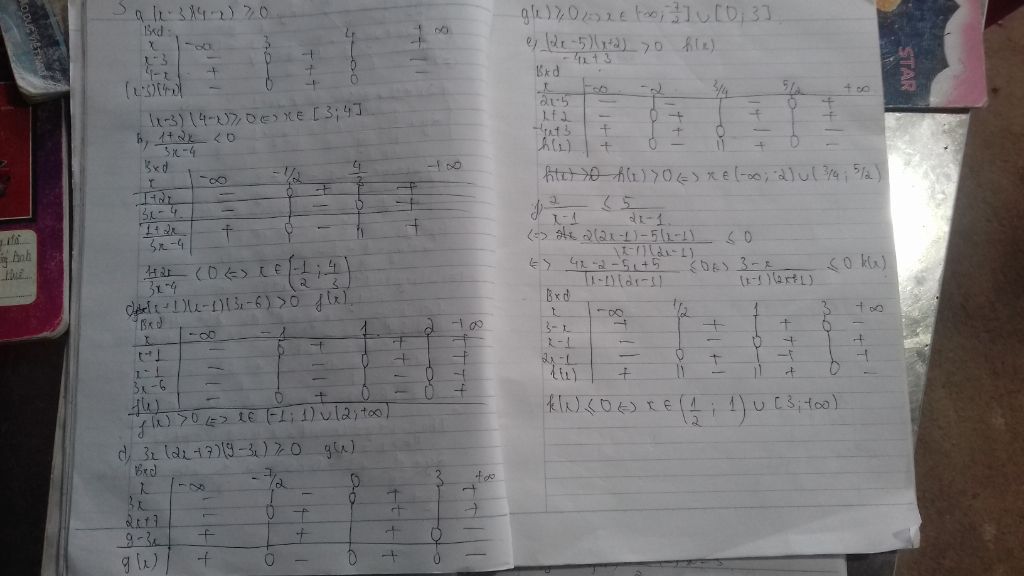 a, (x-3)(4-x) ≥ 0.
Bxd:
x | -∞ 3 4 +∞
x-3 | - 0 + +
4-x | + + 0 -
(x-3)(4-x) | - 0 + 0 -
(x-3)(4-x) ≥ 0 <=> x ∈ [3; 4]
b, (1+2x)/(3x-4) < 0
Bxd
x | -∞ -1/2 4/3 +∞
1+2x | - 0 + +
3x-4 | - - 0 +
(1+2x)/(3x-4) | + 0 - || +
(1+2x)/(3x-4) < 0 <=> x ∈ (-1/2; 4/3)
(x-1)(3x-6) > 0 f(x)
Bxd
x | -∞ -1 1 2 +∞
x+1 | - 0 + + +
x-1 | - - 0 + +
3x-6 | - - - 0 +
f(x) | - 0 + 0 - 0 +
f(x) > 0 <=> x ∈ (-1; 1) ∪ (2; +∞)
d, 3x(2x+7)(9-3x) ≥ 0 g(x)
Bxd
x | -∞ -7/2 0 3 +∞
3x | - - 0 + +
2x+7 | - 0 + + +
9-3x | + + + 0 -
g(x) | + 0 - 0 + 0 -
g(x) ≥ 0 <=> x ∈ (-∞; -7/2] ∪ [0; 3].
e, (2x-5)(x+2)/(-4x+3) > 0 h(x)
Bxd
x | -∞ -2 3/4 5/2 +∞
2x-5 | - - - 0 +
x+2 | - 0 + + +
-4x+3 | + + 0 - -
h(x) | + 0 - || + 0 -
h(x) > 0 <=> x ∈ (-∞; -2) ∪ (3/4; 5/2)
2/(x-1) ≤ 5/(2x-1)
<=> 2(2x-1)-5(x-1)/(x-1)(2x-1) ≤ 0
<=> 4x-2-5x+5/(x-1)(2x-1) ≤ 0 <=> 3-x/(x-1)(2x+1) ≤ 0 k(x)
Bxd
x | -∞ 1/2 1 3 +∞
3-x | + + + 0 -
x-1 | - - 0 + +
2x-1 | - 0 + + +
k(x) | + || - || + 0 -
k(x) ≤ 0 <=> x ∈ (1/2; 1) ∪ [3; +∞)
STAR